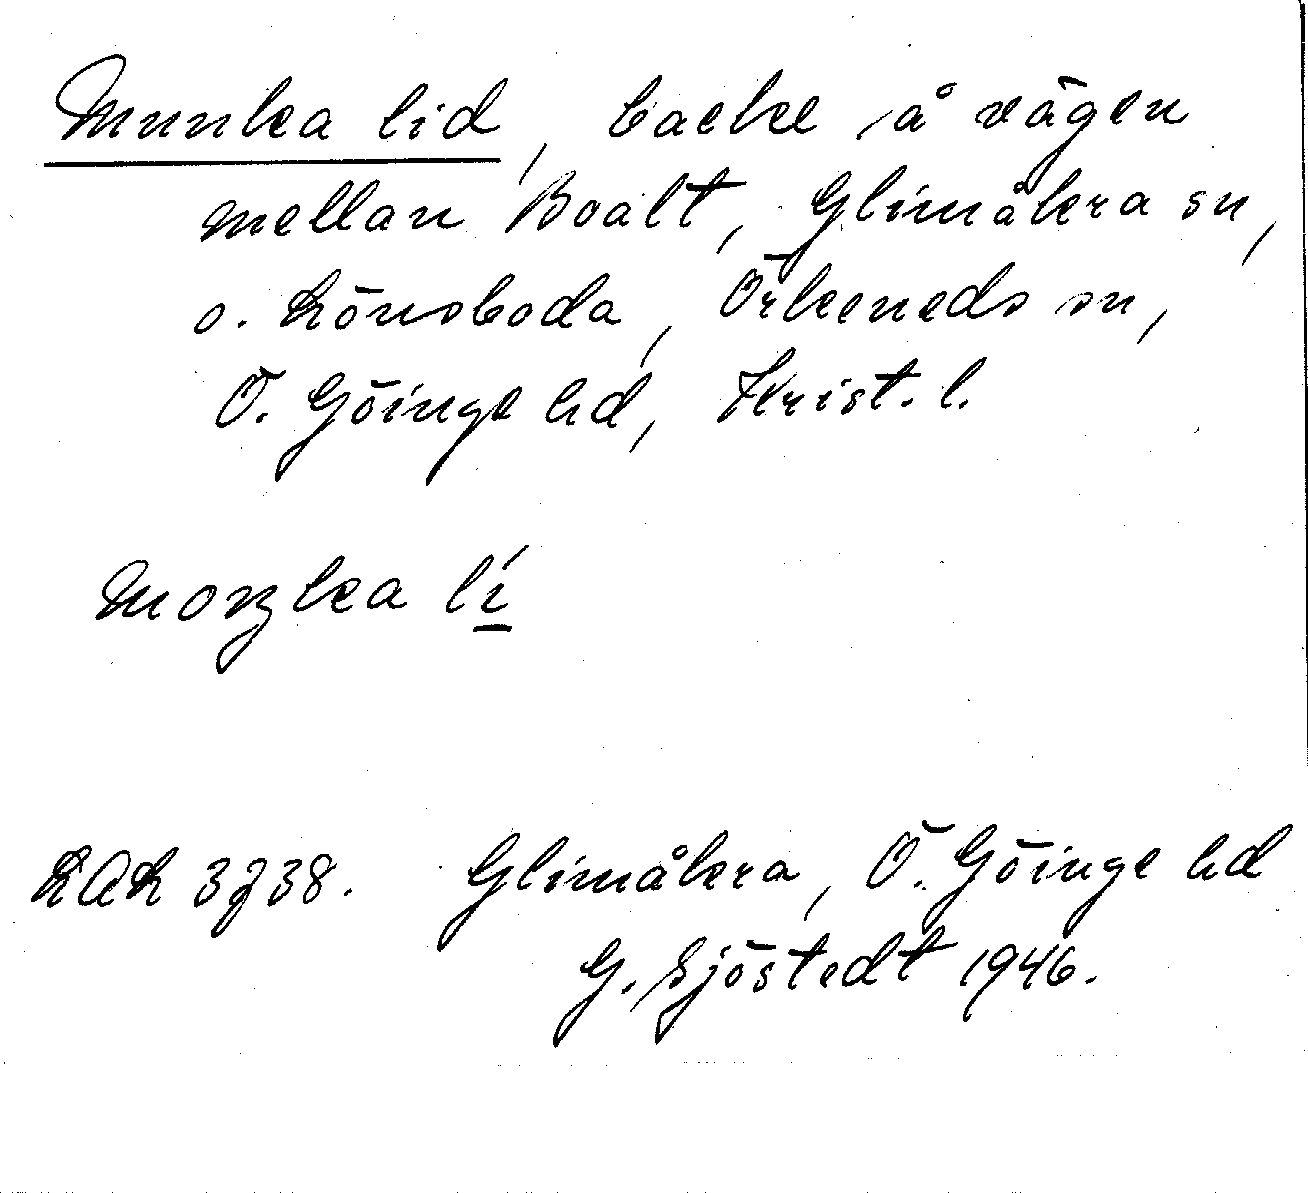 Munka lid, backe å vägen
mellan Boalt, Glimåkra sn,
o. Lönsboda, Örkeneds sn,
Ö. Göinge hd, Krist. l.
moŋka lí
RAK 3738. Glimåkra, Ö. Göinge hd
G. Sjöstedt 1946.